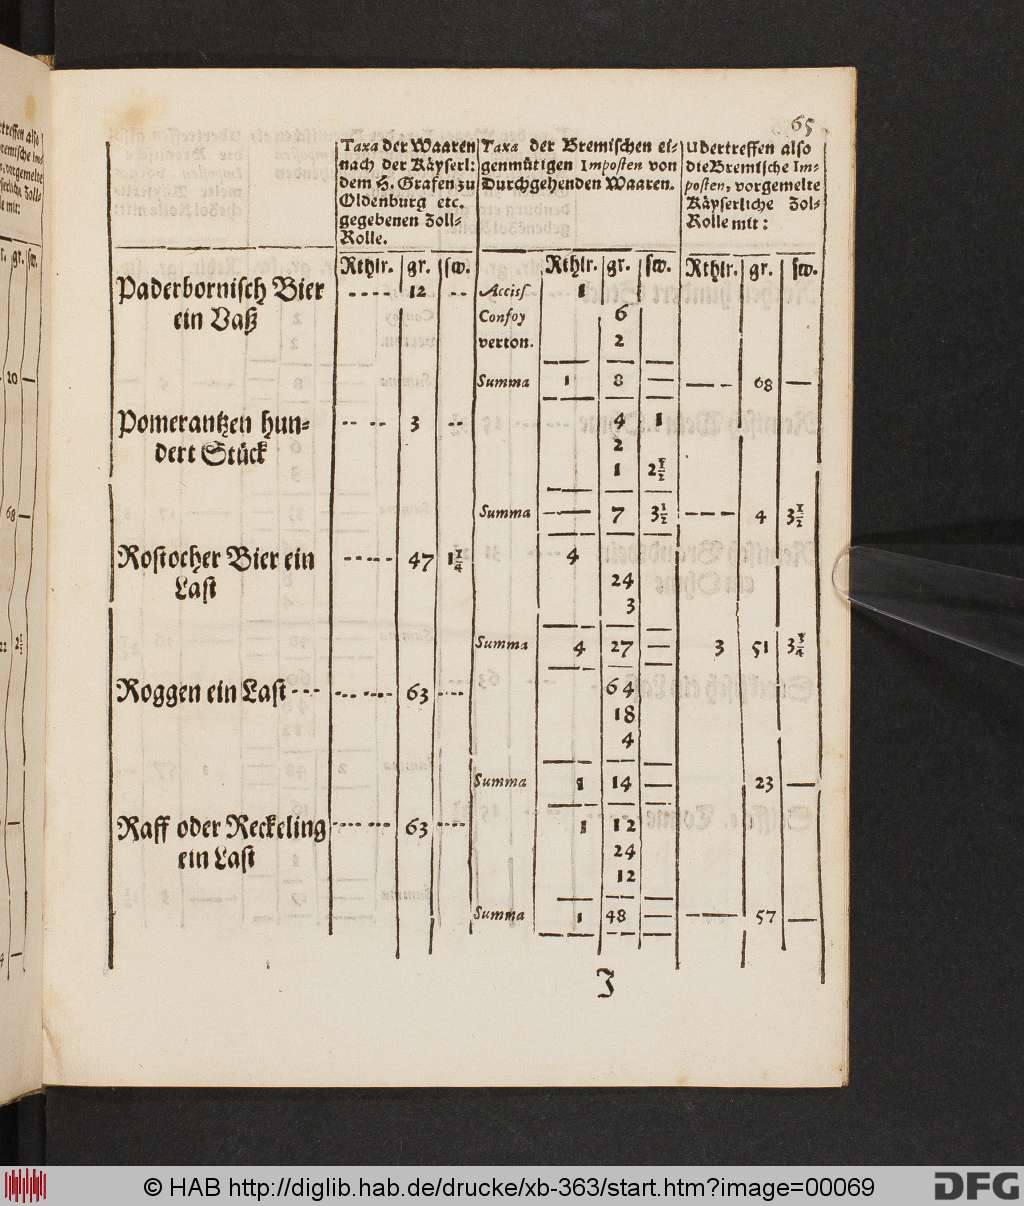 65
Taxa der Waaren
nach der Käyserl:
dem H. Grafen zu
Oldenburg etc.
gegebenen Zoll-
Rolle.
Taxa der Bremischen ei-
genmütigen Imposten von
Durchgehenden Waaren.
Ubertreffen also
die Bremische Im-
posten, vorgemelte
Käyserliche Zol-
Rolle mit:
Rthlr. gr. sw. Rthlr. gr. sw. Rthlr. gr. sw.
Paderbornisch Bier ---- 12 -- Acciss 1
ein Vaß Confoy 6
verton. 2
Summa 1 8 — —— - 68 —
Pomerantzen hun- -- -- 3 -- 4 1
dert Stück 2
1 2½
Summa —— 7 3½ --- 4 3½
Rostocher Bier ein ----- 47 1¼ 4
Last 24
3
Summa 4 27 — 3 51 3¾
Roggen ein Last --- -- --- 63 --- 64
18
4
Summa 1 14 — 23 —
Raff oder Reckeling --- --- 63 ---- 1 12
ein Last 24
12
Summa 1 48 — —— 57 —
J
© HAB http://diglib.hab.de/drucke/xb-363/start.htm?image=00069
DFG